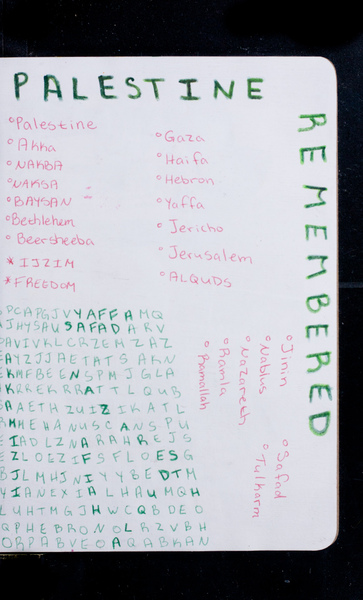 PALESTINE
REMEMBERED
Palestine
Akka
NAKBA
NAKSA
BAYSAN
Bethlehem
Beersheeba
* IJZIM
* FREEDOM
Gaza
Haifa
Hebron
Yaffa
Jericho
Jerusalem
ALQUDS
Jinin
Nablus
Nazareth
Ramla
Ramallah
Safad
Tulkarm
PCAPGJVYAFFAMQ
JHYSAUSAFADARV
PAVIVKLCRZEMZAZ
AYZJJAETATSAKN
EKMFBEENSPMJGLA
KRREKRRATTLQUB
AAETHZUIZIKATL
RMMEHANUSCANSPU
EIADLZNARAHREJS
EZLOEZIFSFLOESG
BJLMHJNIYYBEDTM
YIANEXIALHAUMQH
LUHTMGJHWCQBDEO
QPHEBRONOLRZVBH
ORPABVEOAQABKAN